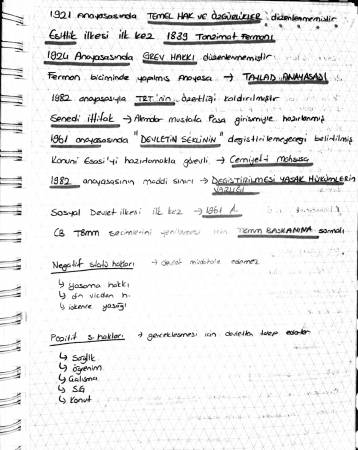 1921 Anayasasında TEMEL HAK VE ÖZGÜRLÜKLER düzenlenmemiştir
Eşitlik ilkesi ilk kez 1839 Tanzimat Fermanı
1924 Anayasasında GREV HAKKI düzenlenmemiştir
Ferman biçiminde yapılmış Anayasa →
1982 anayasasıyla TRT'nin özerkliği kaldırılmıştır
Senedi ittifak → Alemdar mustafa Paşa girişimiyle hazırlanmış
1961 anayasasında "DEVLETİN ŞEKLİNİN" değiştirilemeyeceği belirtilmiş
Kanuni Esasi'yi hazırlamakla görevli → Cemiyet-i mahsusa
1982 anayasasının maddi sınırı → DEĞİŞTİRİLMESİ YASAK HÜKÜMLERİN VARLIĞI
Sosyal Devlet ilkesi ilk kez → 1961 A.
CB TBMM seçimlerini yenilemesi için TBMM BAŞKANINA
Negatif statü hakları → devlet müdahale edemez
↳ yaşama hakkı
↳ din vicdan h.
↳ işkence yasağı
Pozitif s. hakları → gerçekleşmesi için devletten talep
↳ Sağlık
↳ öğrenim
↳ Çalışma
↳ SG
↳ Konut